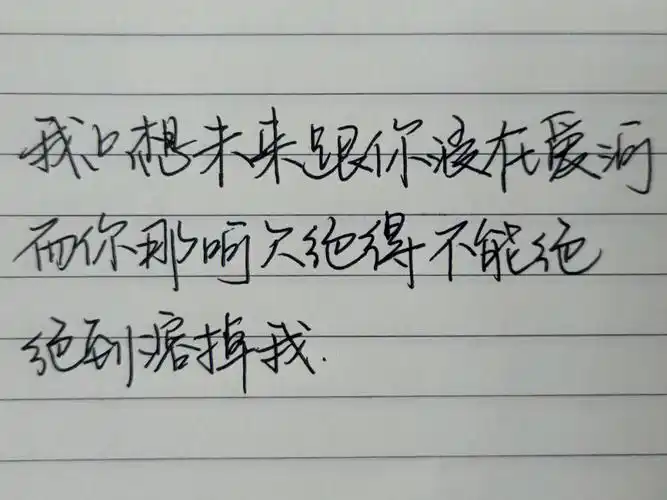 我只想未来跟你浸在爱河
而你那呵欠绝得不能绝
绝到溶掉我.